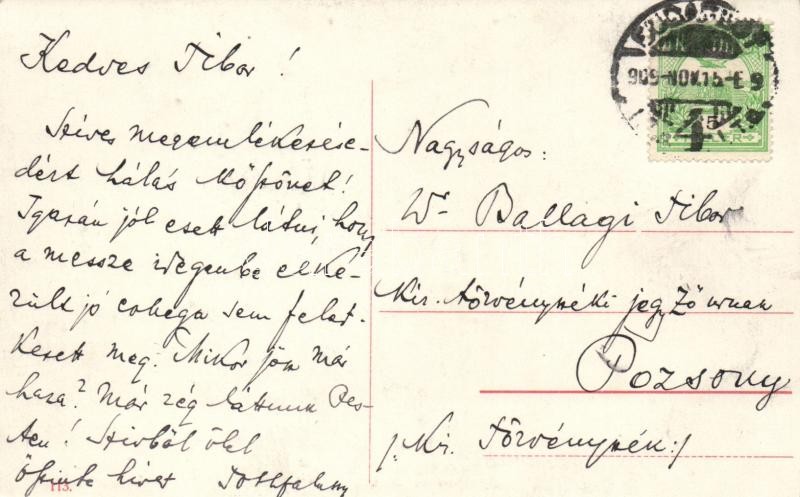 Kedves Tibor!
Szíves megemlékezése-
dért hálás köszönet!
Igazán jól esett látni, hogy
a messze idegenbe elke-
rült jó collega sem felet-
kezett meg. Mikor jön már
haza? Már rég láttunk Pes-
ten! Szivből ölel
őszinte hived
113.
909-NOV.15-E 9
Nagyságos:
Ballagi Tibor
Kir. törvényszéki jegyző urnak
Pozsony
/: Kir. Törvényszék :/